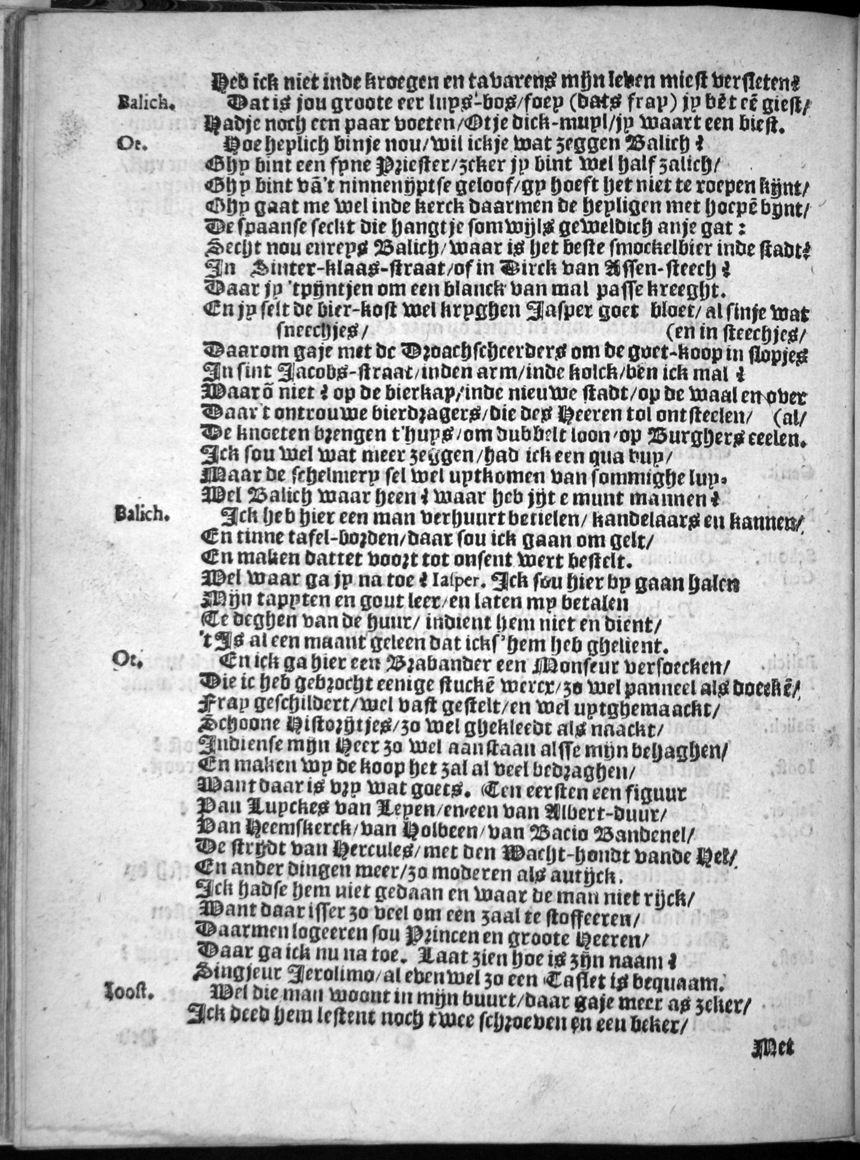 Hed ick niet inde kroegen en tavarens mijn leven miest versleten?
Balich. Dat is jou groote eer luys-bos/foey (dats fray) jy bēt eē giest/
Hadje noch een paar voeten/Otje dick-muyl/jy waart een biest.
Ot. Hoe heylich binje nou/wil ickje wat zeggen Balich?
Ghy bint een fyne Priester/zeker jy bint wel half zalich/
Ghy bint vā't ninnenijptse geloof/gy hoeft het niet te roepen kijnt/
Ghy gaat me wel inde kerck daarmen de heyligen met hoepē bynt/
De spaanse seckt die hangtje somwijls geweldich anje gat:
Secht nou enreys Balich/waar is het beste smockelbier inde stadt?
In Sinter-klaas-straat/of in Dirck van Assen-steech?
Daar jy 'tpijntjen om een blanck van mal passe kreeght.
En jy selt de bier-kost wel kryghen Jasper goet bloet/al sinje wat
sneechjes/ (en in steechjes/
Daarom gaje met de Droachscheerders om de goet-koop in slopjes
In sint Jacobs-straat/inden arm/inde kolck/ben ick mal?
Waarō niet? op de bierkay/inde nieuwe stadt/op de waal en over
Daar't ontrouwe bierdragers/die des Heeren tol ontsteelen/ (al/
De knoeten brengen t'huys/om dubbelt loon/op Burghers ceelen.
Ick sou wel wat meer zeggen/had ick een qua buy/
Maar de schelmery sel wel uytkomen van sommighe luy.
Wel Balich waar heen? waar heb jijt e munt mannen?
Balich. Ick heb hier een man verhuurt betielen/kandelaars en kannen/
En tinne tafel-borden/daar sou ick gaan om gelt/
En maken dattet voort tot onsent wert bestelt.
Wel waar ga jy na toe? Iasper. Ick sou hier by gaan halen
Mijn tapyten en gout leer/en laten my betalen
Te deghen van de huur/indient hem niet en dient/
't Is al een maant geleen dat icks'hem heb ghelient.
Ot. En ick ga hier een Brabander een Monseur versoecken/
Die ic heb gebrocht eenige stuckē wercx/zo wel panneel als doeckē/
Fray geschildert/wel vast gestelt/en wel uytghemaackt/
Schoone Historijtjes/zo wel ghekleedt als naackt/
Indiense mijn Heer zo wel aanstaan alsse mijn behaghen/
En maken wy de koop het zal al veel bedraghen/
Want daar is vry wat goets. Ten eersten een figuur
Van Luyckes van Leyen/en een van Albert-duur/
Van Heemskerck/van Holbeen/van Bacio Bandenel/
De strydt van Hercules/met den Wacht-hondt vande Hel/
En ander dingen meer/zo moderen als autijck.
Ick hadse hem niet gedaan en waar de man niet rijck/
Want daar isser zo veel om een zaal te stoffeeren/
Daarmen logeeren sou Princen en groote Heeren/
Daar ga ick nu na toe. Laat zien hoe is zijn naam?
Singjeur Jerolimo/al evenwel zo een Taflet is bequaam.
Ioost. Wel die man woont in mijn buurt/daar gaje meer as zeker/
Ick deed hem lestent noch twee schroeven en een beker/
Met